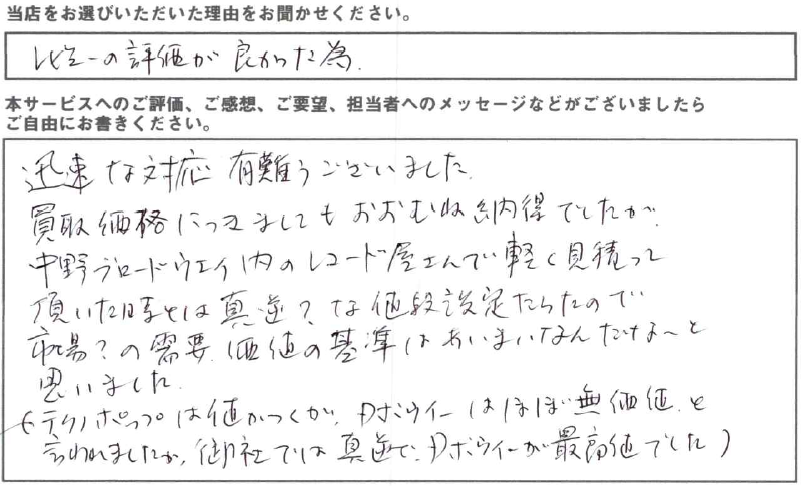 当店をお選びいただいた理由をお聞かせください。
レビューの評価が良かった為.
本サービスへのご評価、ご感想、ご要望、担当者へのメッセージなどがございましたら
ご自由にお書きください。
迅速な対応 有難うございました.
買取価格につきましてもおおむね納得でしたが.
中野ブロードウェイ内のレコード屋さんで軽く見積って
頂いた時とは真逆?な値段設定だったので
市場?の需要.価値の基準はあいまいなんだな〜と
思いました.
(テクノポップは値がつくが、Dボウイーはほぼ無価値.と
言われましたが,御社では真逆で、Dボウイーが最高値でした)